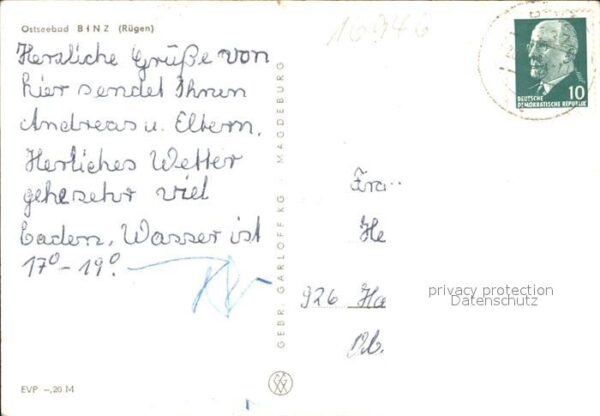 Ostseebad BINZ (Rügen)
16946
Herzliche Grüße von
hier sendet Ihnen
Andreas u. Eltern.
Herliches Wetter
gehe sehr viel
baden, Wasser ist
17° - 19°.
GEBR. GARLOFF KG · MAGDEBURG
EVP -,20 M
10
DEUTSCHE
DEMOKRATISCHE REPUBLIK
Fra
He
926 Ha
privacy protection
Datenschutz